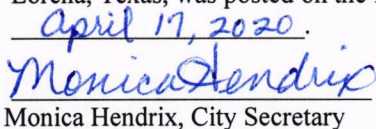 Lorena, Texas, was posted on the
April 17, 2020.
Monica Hendrix
Monica Hendrix, City Secretary